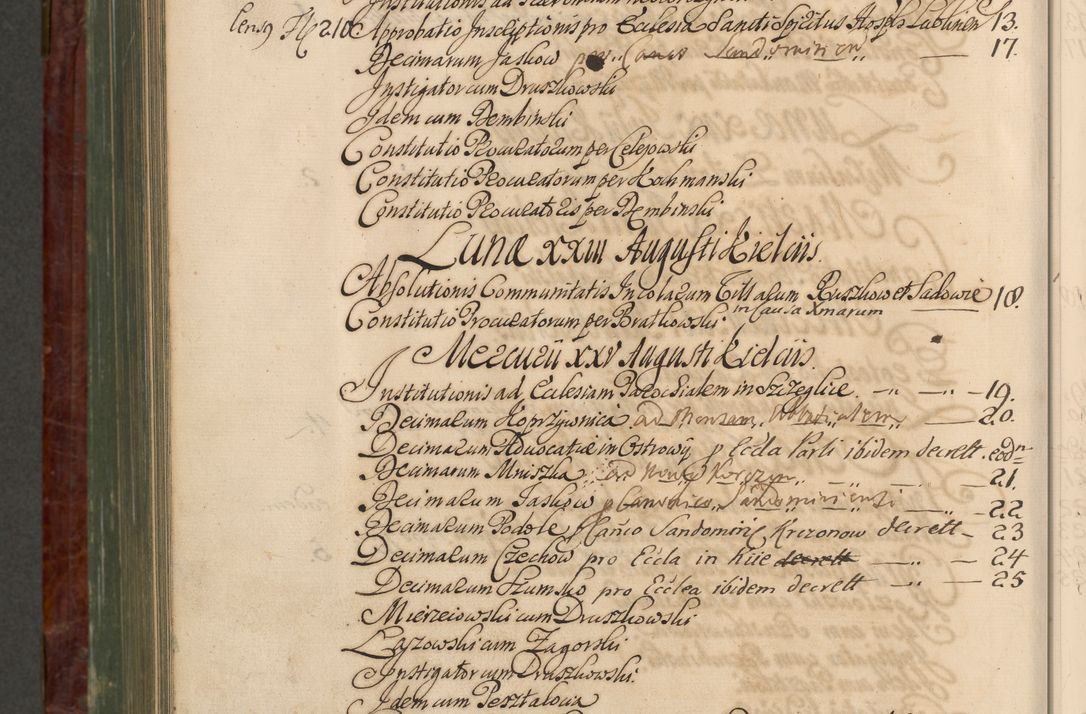 Censg Fl 210 Approbatio Inscriptionis pro Ecclesia Sancti Spiritus Hospls Lublinen 13.
Decimarum Jaskow per Canco Sandomirien — 17.
Instigator cum Druszkowski
Idem cum Dembinski
Constitutio Procuratorum per Celejowski
Constitutio Procuratorum per Kochmanski
Constitutio Procuratoris per Dembinski
Lunæ XXIII Augusti Kielciis.
Absolutionis Communitatis Incolarum Villarum Ruszkow et Sadowie 18.
Constitutio Procuratorum per Bratkowski in Causa Xmarum
Mercurii XXV Augusti Kielciis.
Institutionis ad Ecclesiam Parochialem in Szczeglice — „ — „ — 19.
Decimarum Koprzywnica ad Mensam Abbatialem 20.
Decimarum Advocatiæ in Ostrowy p Eccla Parli ibidem decrett. eodn
Decimarum Mniszka ad Nove Korczyn — „ — „ — 21.
Decimarum Jaskow p Canonico Sandomiriensi — 22
Decimarum Podole p Canco Sandomiri Krzonow decrett — 23
Decimarum Czechow pro Eccla in Kiie decrett — „ — 24
Decimarum Humsko pro Ecclea ibidem decrett — „ — 25
Mierzeiowski cum Druszkowski
Łazowski cum Zagorski
Instigator cum Druszkowski.
Idem cum Pesztalocia